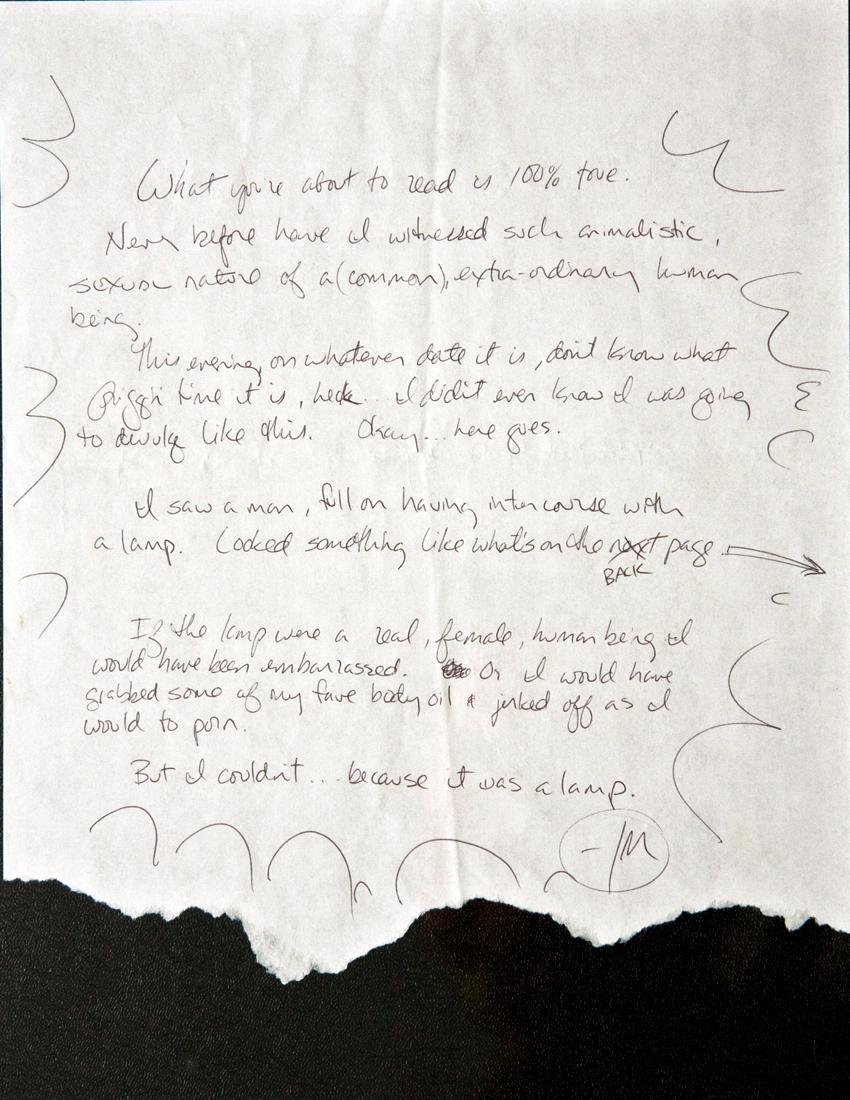 What you're about to read is 100% true.
Never before have I witnessed such animalistic,
sexual nature of a (common), extra-ordinary human
being.
This evening, on whatever date it is, don't know what
friggin time it is, heck... I didn't even know I was going
to divulge like this. Okay... here goes.
I saw a man, full on having intercourse with
a lamp. Looked something like what's on the next page
BACK
If the lamp were a real, female, human being I
would have been embarrassed. Or I would have
grabbed some of my fave body oil & jerked off as I
would to porn.
But I couldn't... because it was a lamp.